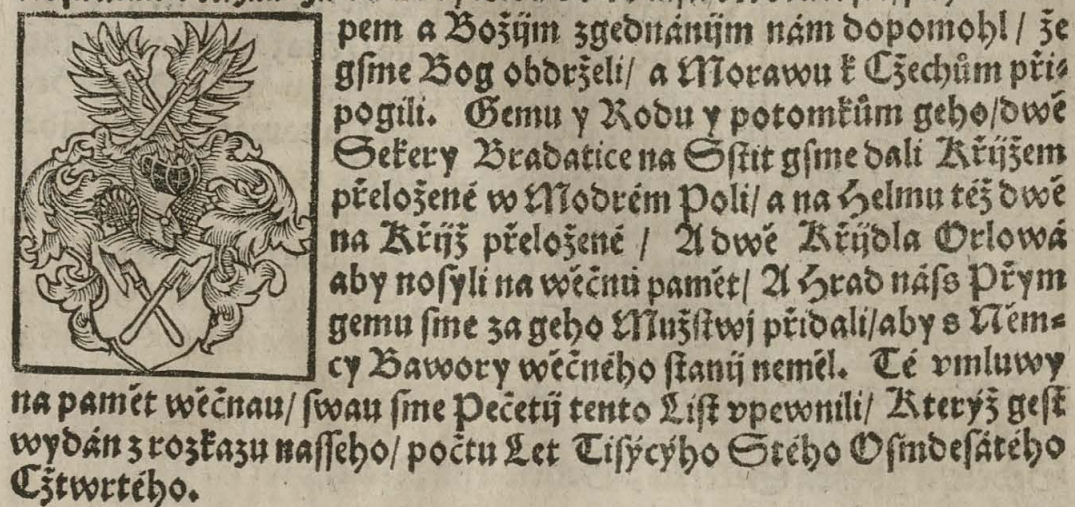 pem a Božijm zgednánijm nám dopomohl / že
gsme Bog obdrželi / a Morawu k Cžechům při⸗
pogili. Gemu y Rodu y potomkům geho / dwě
Sekery Bradatice na Sstit gsme dali Křijžem
přeložené w Modrém Poli / a na Helmu též dwě
na Křijž přeložené / A dwě Křijdla Orlowá
aby nosyli na wěčnú památ / A Hrad náss Přym
gemu sme za geho Mužstwj přidali / aby s Něm⸗
cy Bawory wěčného stanij neměl. Té vmluwy
na pamět wěčnau / swau sme Pečetij tento List vpewnili / Kterýž gest
wydán z rozkazu nasseho / počtu Let Tisýcýho Stého Osmdesátého
Cžtwrtého.